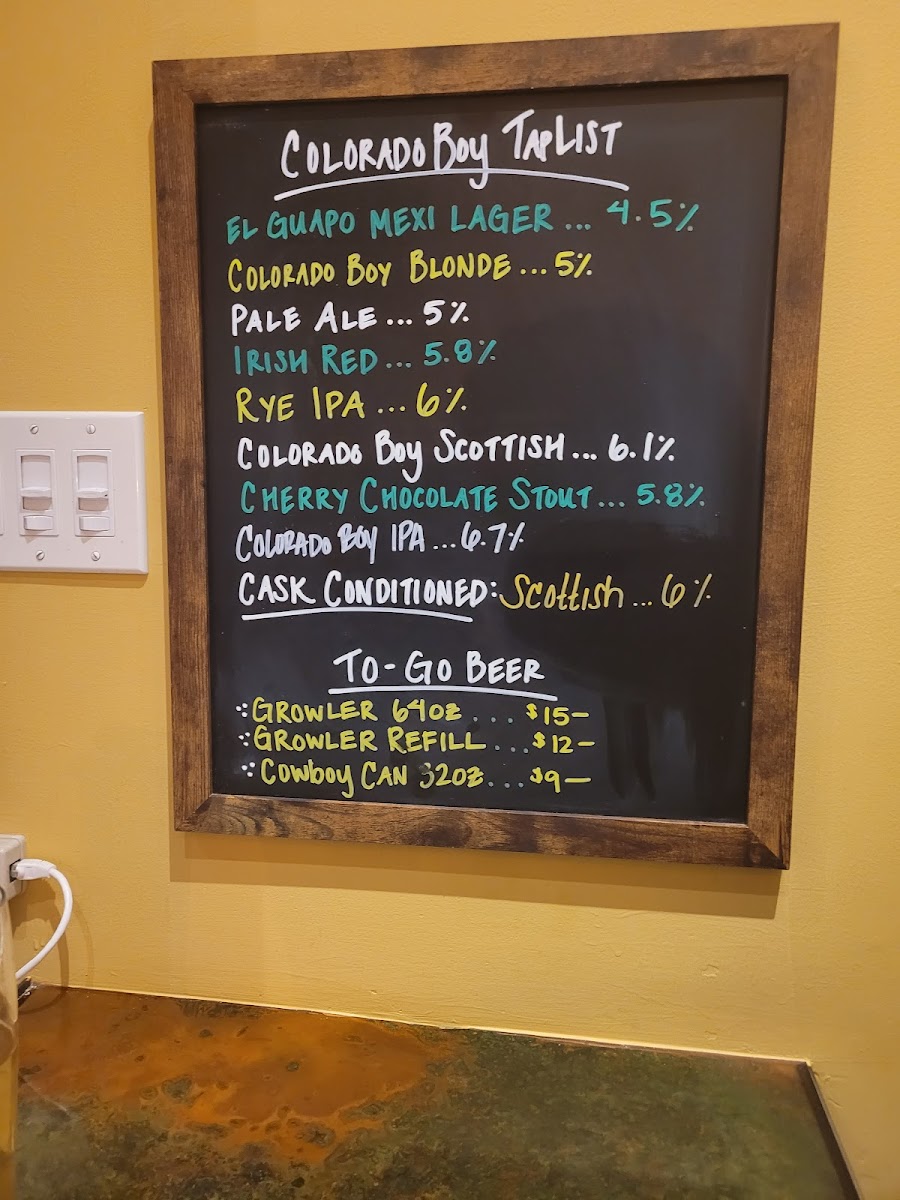 COLORADO BOY TAPLIST
EL GUAPO MEXI LAGER ... 4.5%
COLORADO BOY BLONDE ... 5%
PALE ALE ... 5%
IRISH RED ... 5.8%
RYE IPA ... 6%
COLORADO BOY SCOTTISH ... 6.1%
CHERRY CHOCOLATE STOUT ... 5.8%
COLORADO BOY IPA ... 6.7%
CASK CONDITIONED: Scottish ... 6%
TO-GO BEER
GROWLER 64oz .... $15—
GROWLER REFILL .... $12—
COWBOY CAN 32oz .... $9—